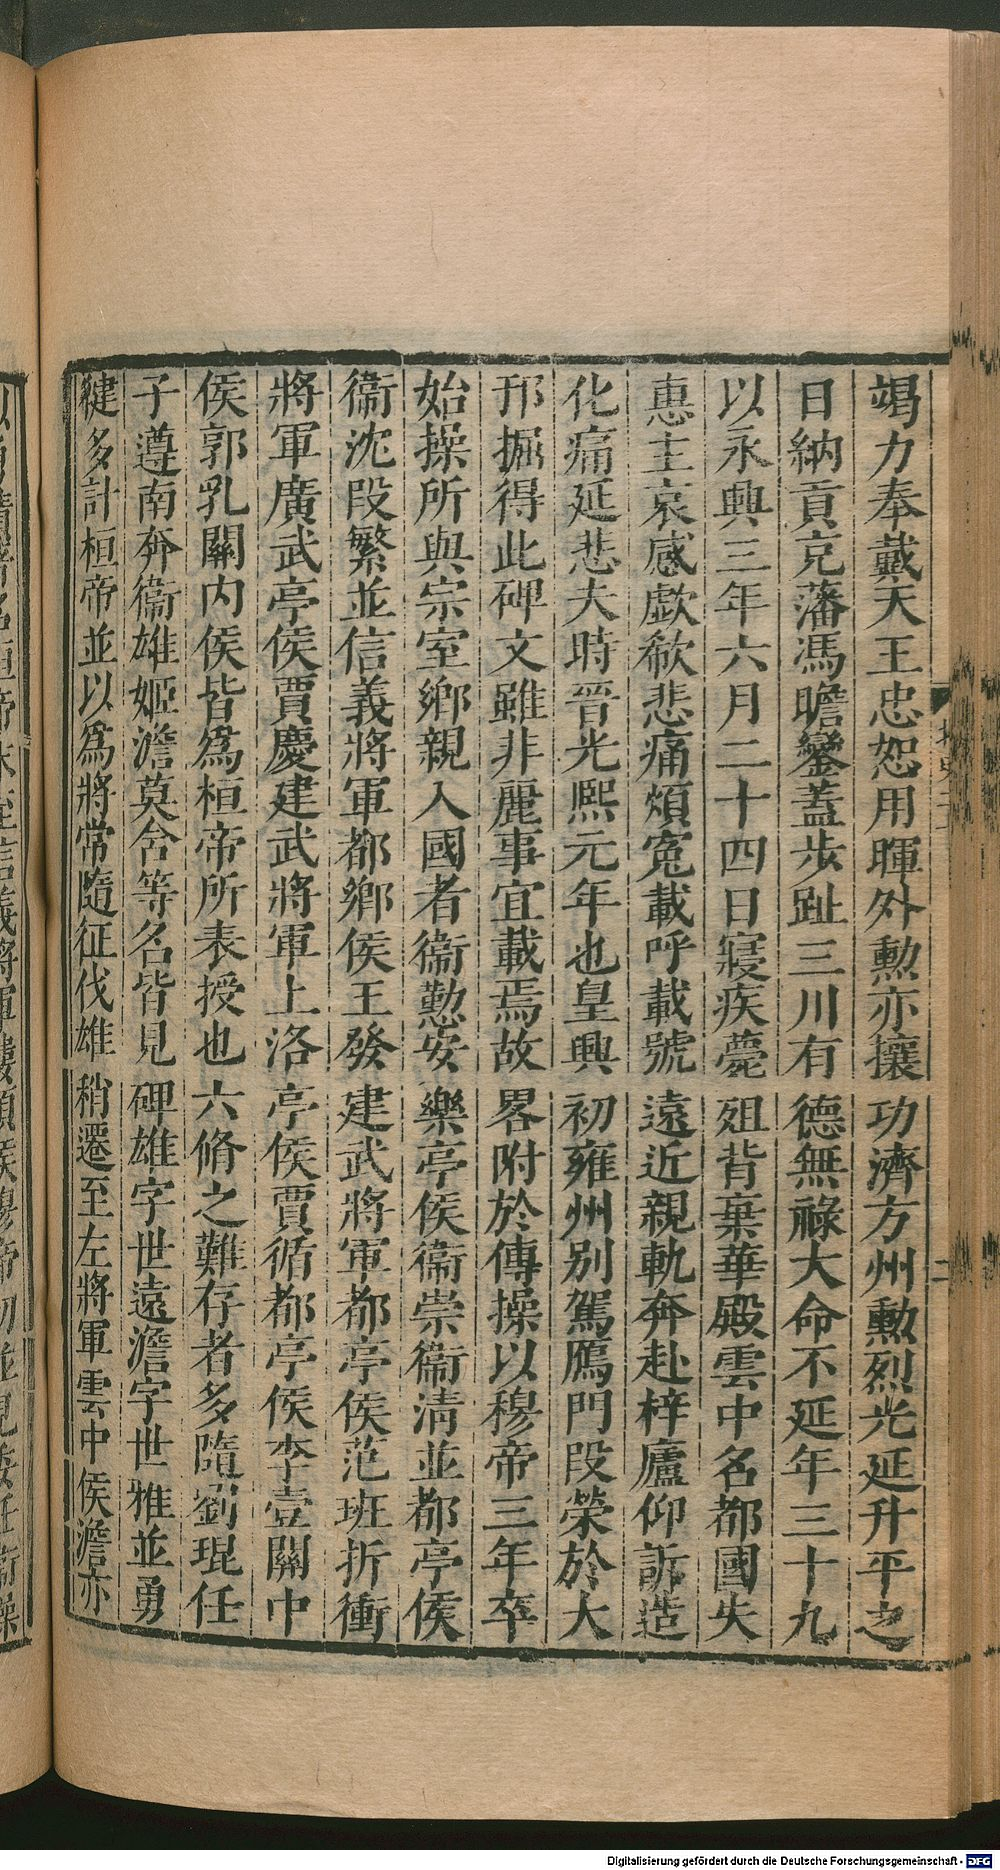 竭力奉戴天王忠恕用暉外勲亦攘功濟方州勲烈光延升平之
日納貢充藩馮瞻鑾蓋步趾三川有德無祿大命不延年三十九
以永興三年六月二十四日寢疾薨殂背棄華殿雲中名都國失
惠主哀感歔欷悲痛煩寃載呼載號遠近親軌奔赴梓廬仰訴造
化痛延悲夫時晉光熙元年也皇興初雍州别駕鴈門段榮於大
邘掘得此碑文雖非麗事宜載焉故畧附於傳操以穆帝三年卒
始操所與宗室鄉親入國者衞懃安樂亭侯衞崇衞清並都亭侯
衞沈段繁並信義將軍都鄉侯王發建武將軍都亭侯范班折衝
將軍廣武亭侯賈慶建武將軍上洛亭侯賈循都亭侯李壹關中
侯郭乳關内侯皆爲桓帝所表授也六脩之難存者多隨劉琨任
子遵南奔衞雄姬澹莫含等名皆見碑雄字世遠澹字世雅並勇
健多計桓帝並以爲將常隨征伐雄稍遷至左將軍雲中侯澹亦
Digitalisierung gefördert durch die Deutsche Forschungsgemeinschaft - DFG